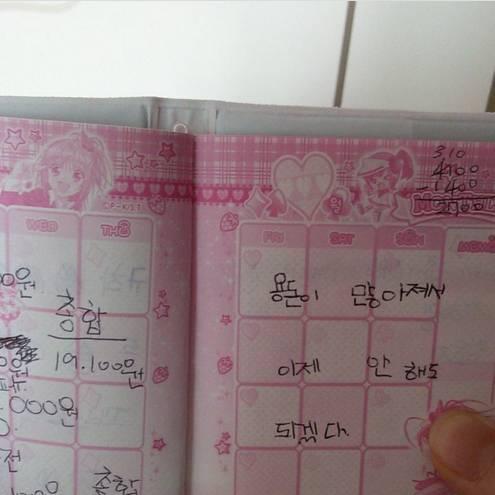 WED THU
0원
총합
19.100원
000원
총합
310
4100
- 1400
2700
월
FRI SAT SUN MEMO
용돈이 많아져서
이제 안 해도
되겠다.